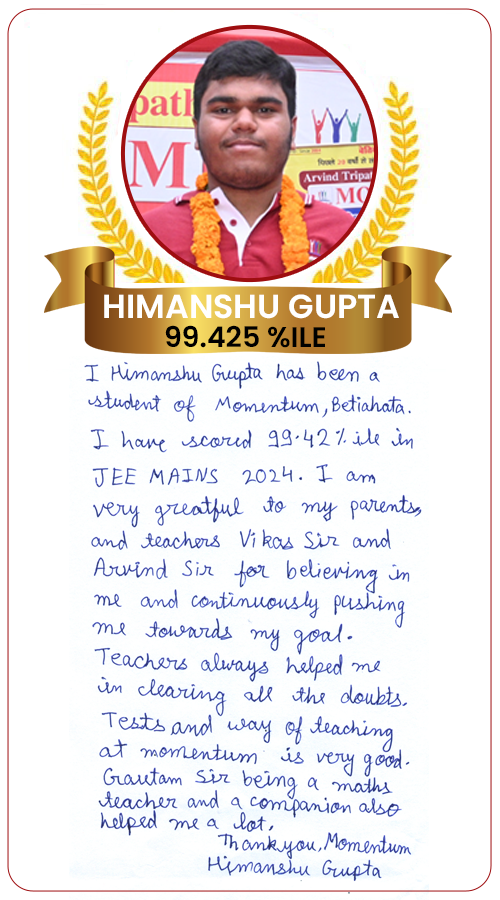 path
M
पिछले 20 वर्षों से
Arvind Tripat
MO
HIMANSHU GUPTA
99.425 %ILE
I Himanshu Gupta has been a
student of Momentum, Betiahata.
I have scored 99.42 % ile in
JEE MAINS 2024. I am
very greatful to my parents,
and teachers Vikas Sir and
Arvind Sir for believing in
me and continuously pushing
me towards my goal.
Teachers always helped me
in clearing all the doubts.
Tests and way of teaching
at momentum is very good.
Grautam Sir being a maths
teacher and a companion also
helped me a lot.
Thankyou, Momentum
Himanshu Gupta